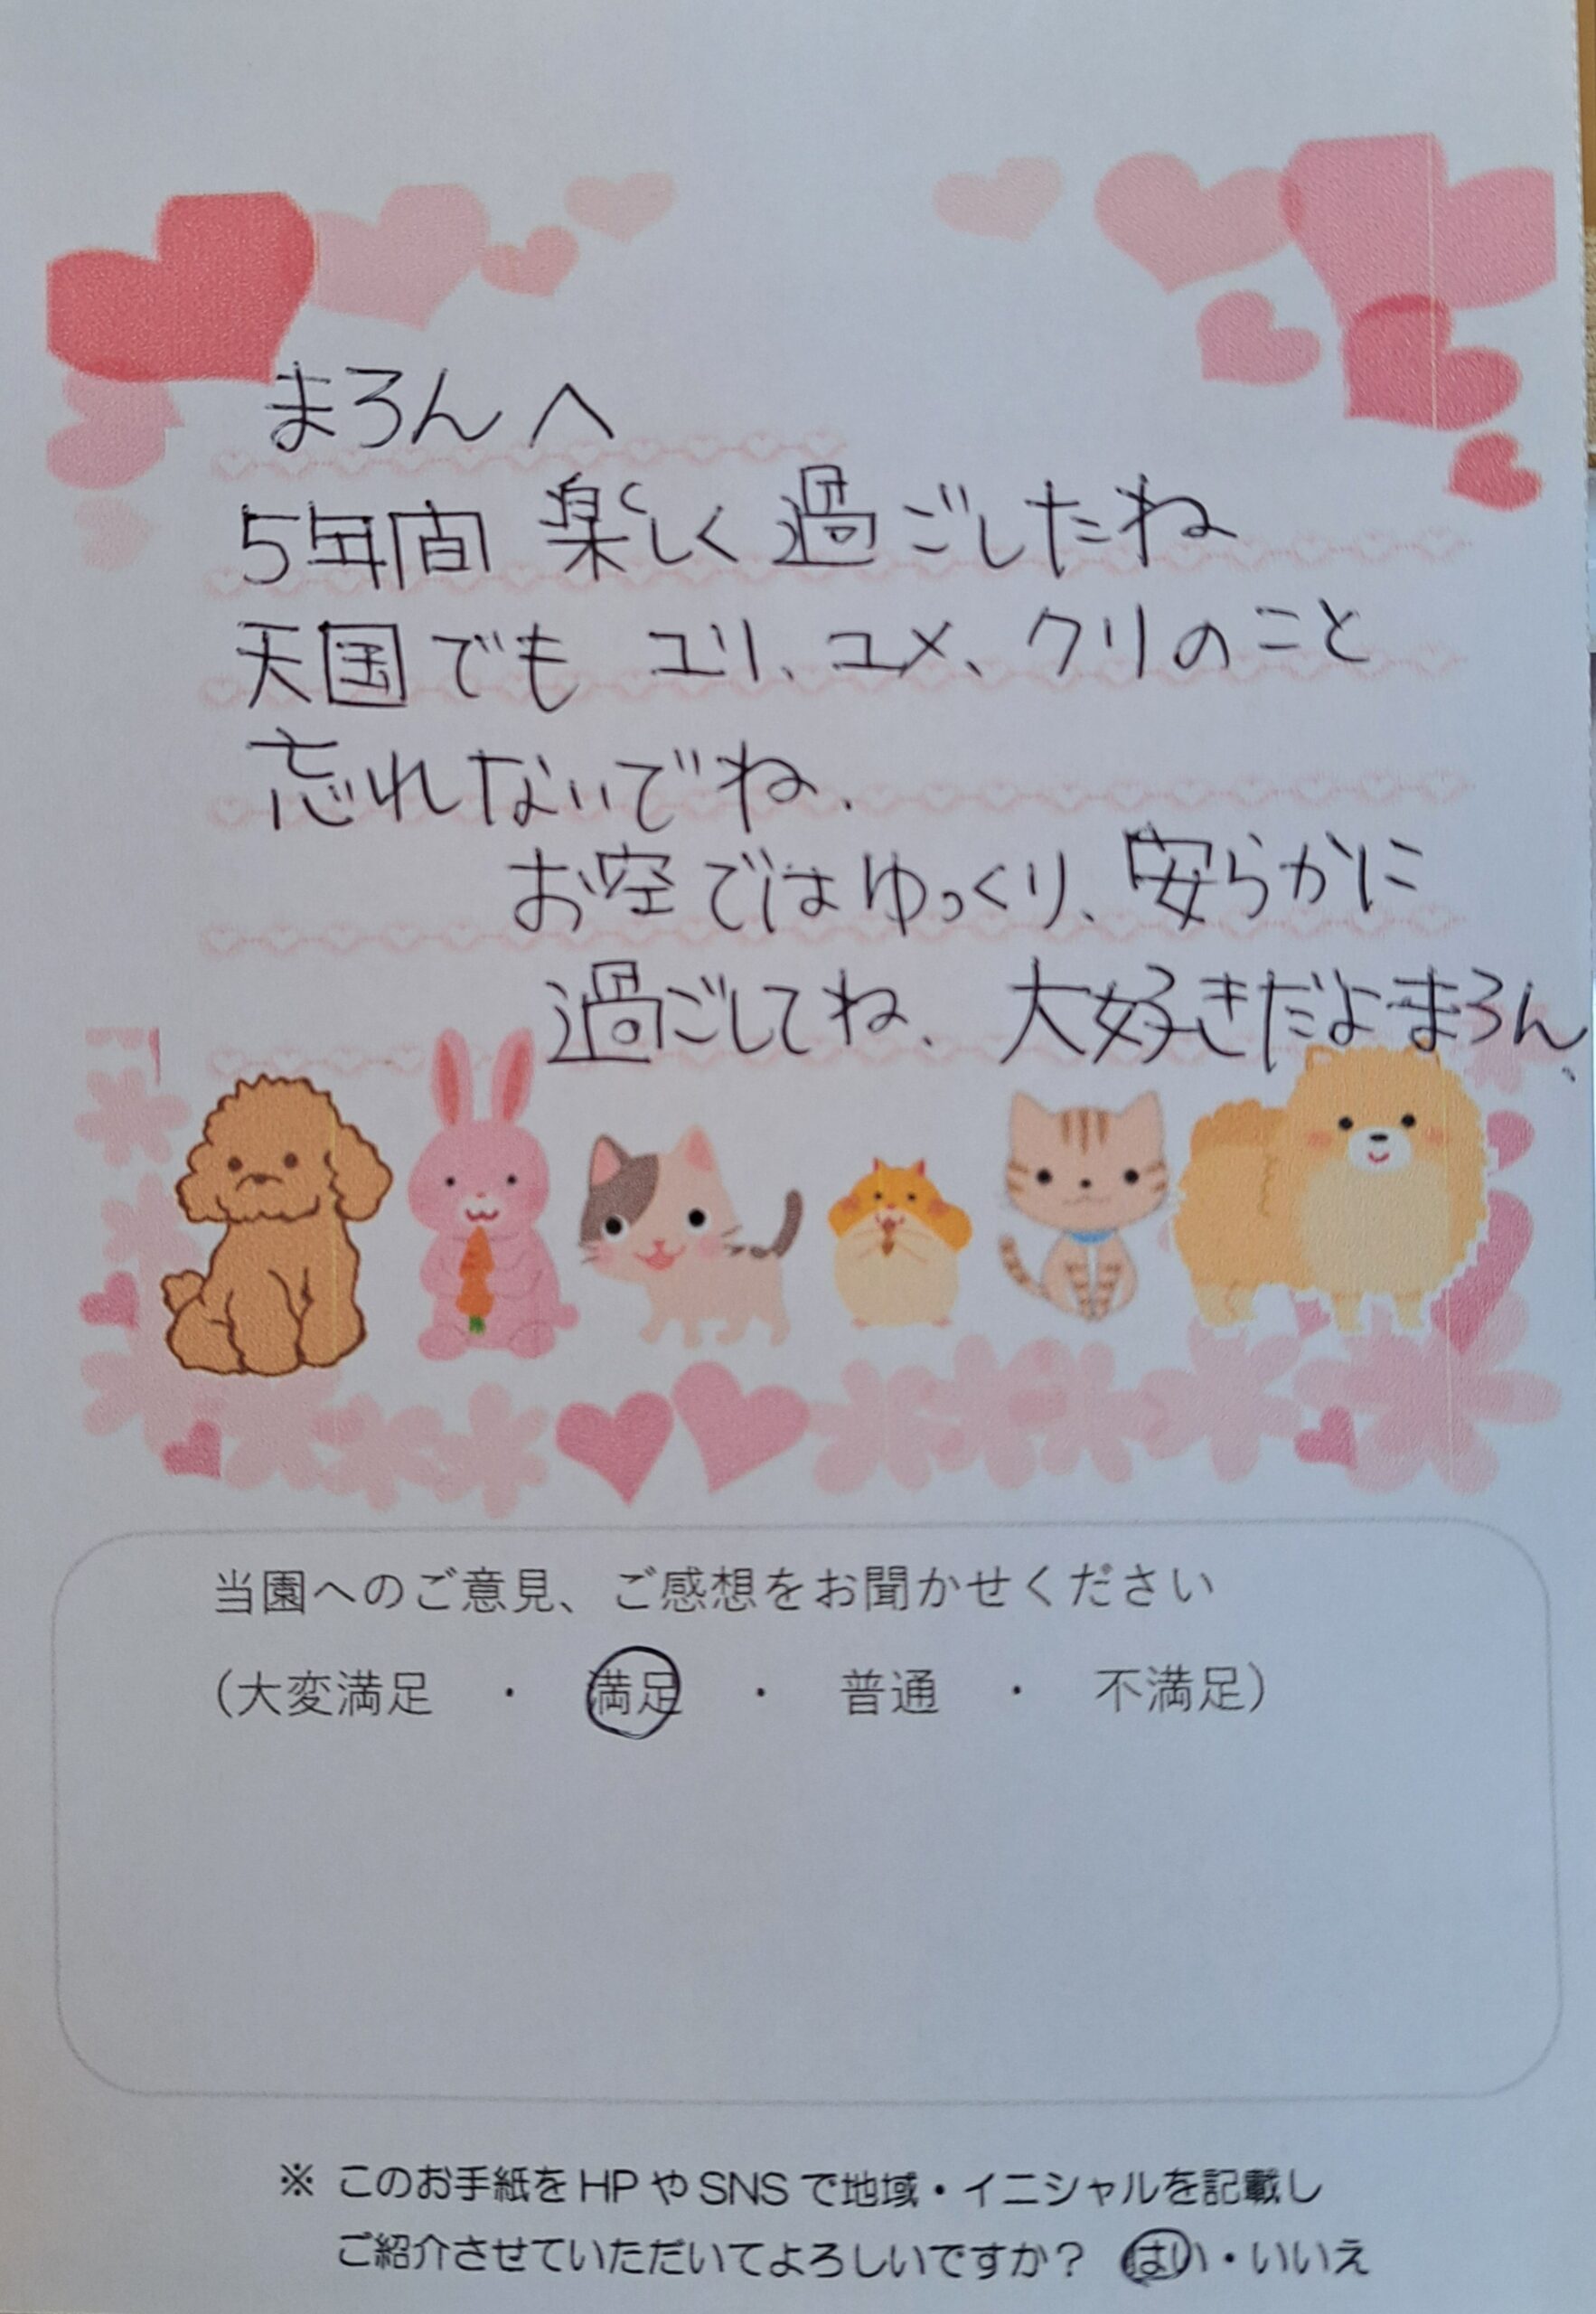 まろんへ
5年間 楽しく過ごしたね
天国でも ユリ、ユメ、クリのこと
忘れないでね.
お空ではゆっくり、安らかに
過ごしてね、大好きだよまろん、
当園へのご意見、ご感想をお聞かせください
（大変満足 ・ 満足 ・ 普通 ・ 不満足）
※ このお手紙をHPやSNSで地域・イニシャルを記載し
ご紹介させていただいてよろしいですか？ はい・いいえ